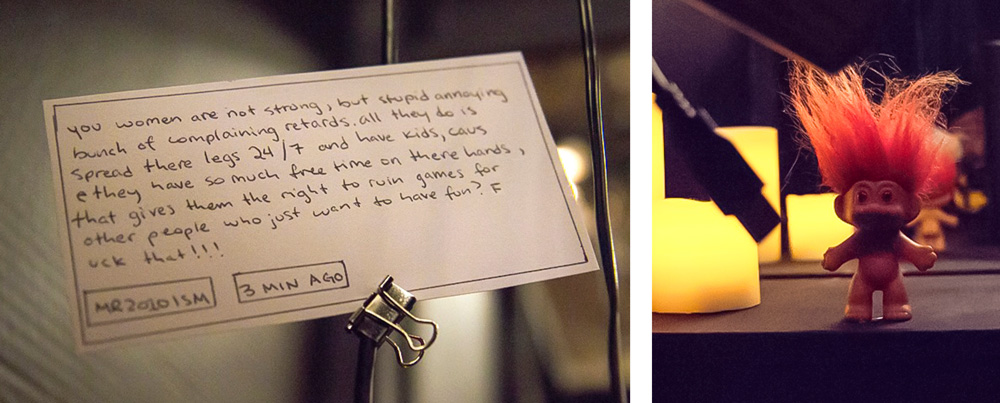 you women are not strong, but stupid annoying
bunch of complaining retards. all they do is
spread there legs 24/7 and have kids, caus
e they have so much free time on there hands,
that gives them the right to ruin games for
other people who just want to have fun? F
uck that!!!
MR20101SM
3 MIN AGO